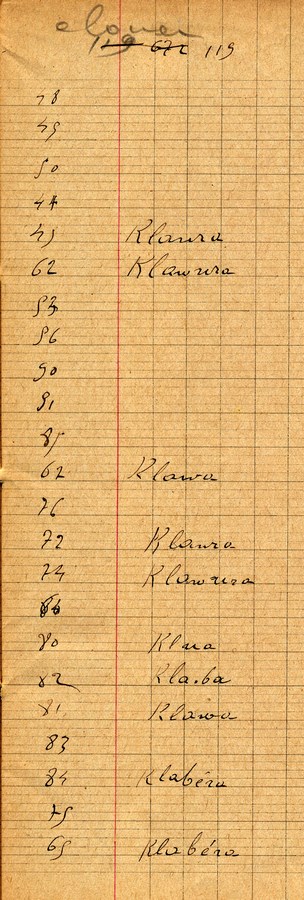 clouer
119 672 119
78
49
50
44
49 Klawra
62 Klawura
53
56
90
91
85
62 Klawa
76
72 Klawra
74 Klawura
80 Klua
82 Kla.ba
81 Klawa
83
84 Klabéra
75
65 Klabéra